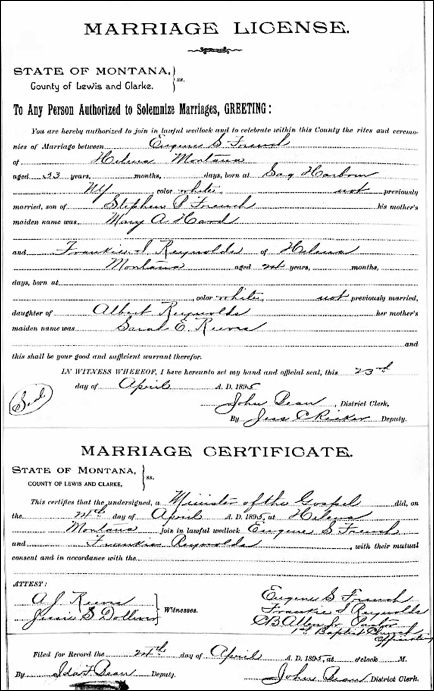 MARRIAGE LICENSE.
STATE OF MONTANA,
County of Lewis and Clarke.
} ss.
To Any Person Authorized to Solemnize Marriages, GREETING:
You are hereby authorized to join in lawful wedlock and to celebrate within this County the rites and ceremo-
nies of Marriage between Eugene S. French
of Helena Montana
aged 23 years, months, days, born at Sag Harbour
NY color white, not previously
married, son of Stephen French his mother's
maiden name was Mary A Hand
and Frankie I Reynolds of Helena
Montana aged 24 years, months,
days, born at
, color white, not previously married,
daughter of Albert Reynolds her mother's
maiden name was Sarah E. Reeves
and
this shall be your good and sufficient warrant therefor.
IN WITNESS WHEREOF, I have hereunto set my hand and official seal, this 23rd
day of April A. D. 1895
John Bean, District Clerk,
By Deputy.
MARRIAGE CERTIFICATE.
STATE OF MONTANA,
COUNTY OF LEWIS AND CLARKE,
} ss.
This certifies that the undersigned, a Minister of the Gospel did, on
the 24th day of April A. D. 1895, at Helena
Montana join in lawful wedlock Eugene S French
and Frankie Reynolds, with their mutual
consent and in accordance with the
ATTEST:
A. J. Reeves
Jessie S.
} Witnesses.
Eugene S. French
Frankie I Reynolds
Pastor
1st Baptist Church
Officiating
Filed for Record the 24th day of April A. D. 1895, at o'clock M.
By Bean Deputy. John Bean District Clerk.